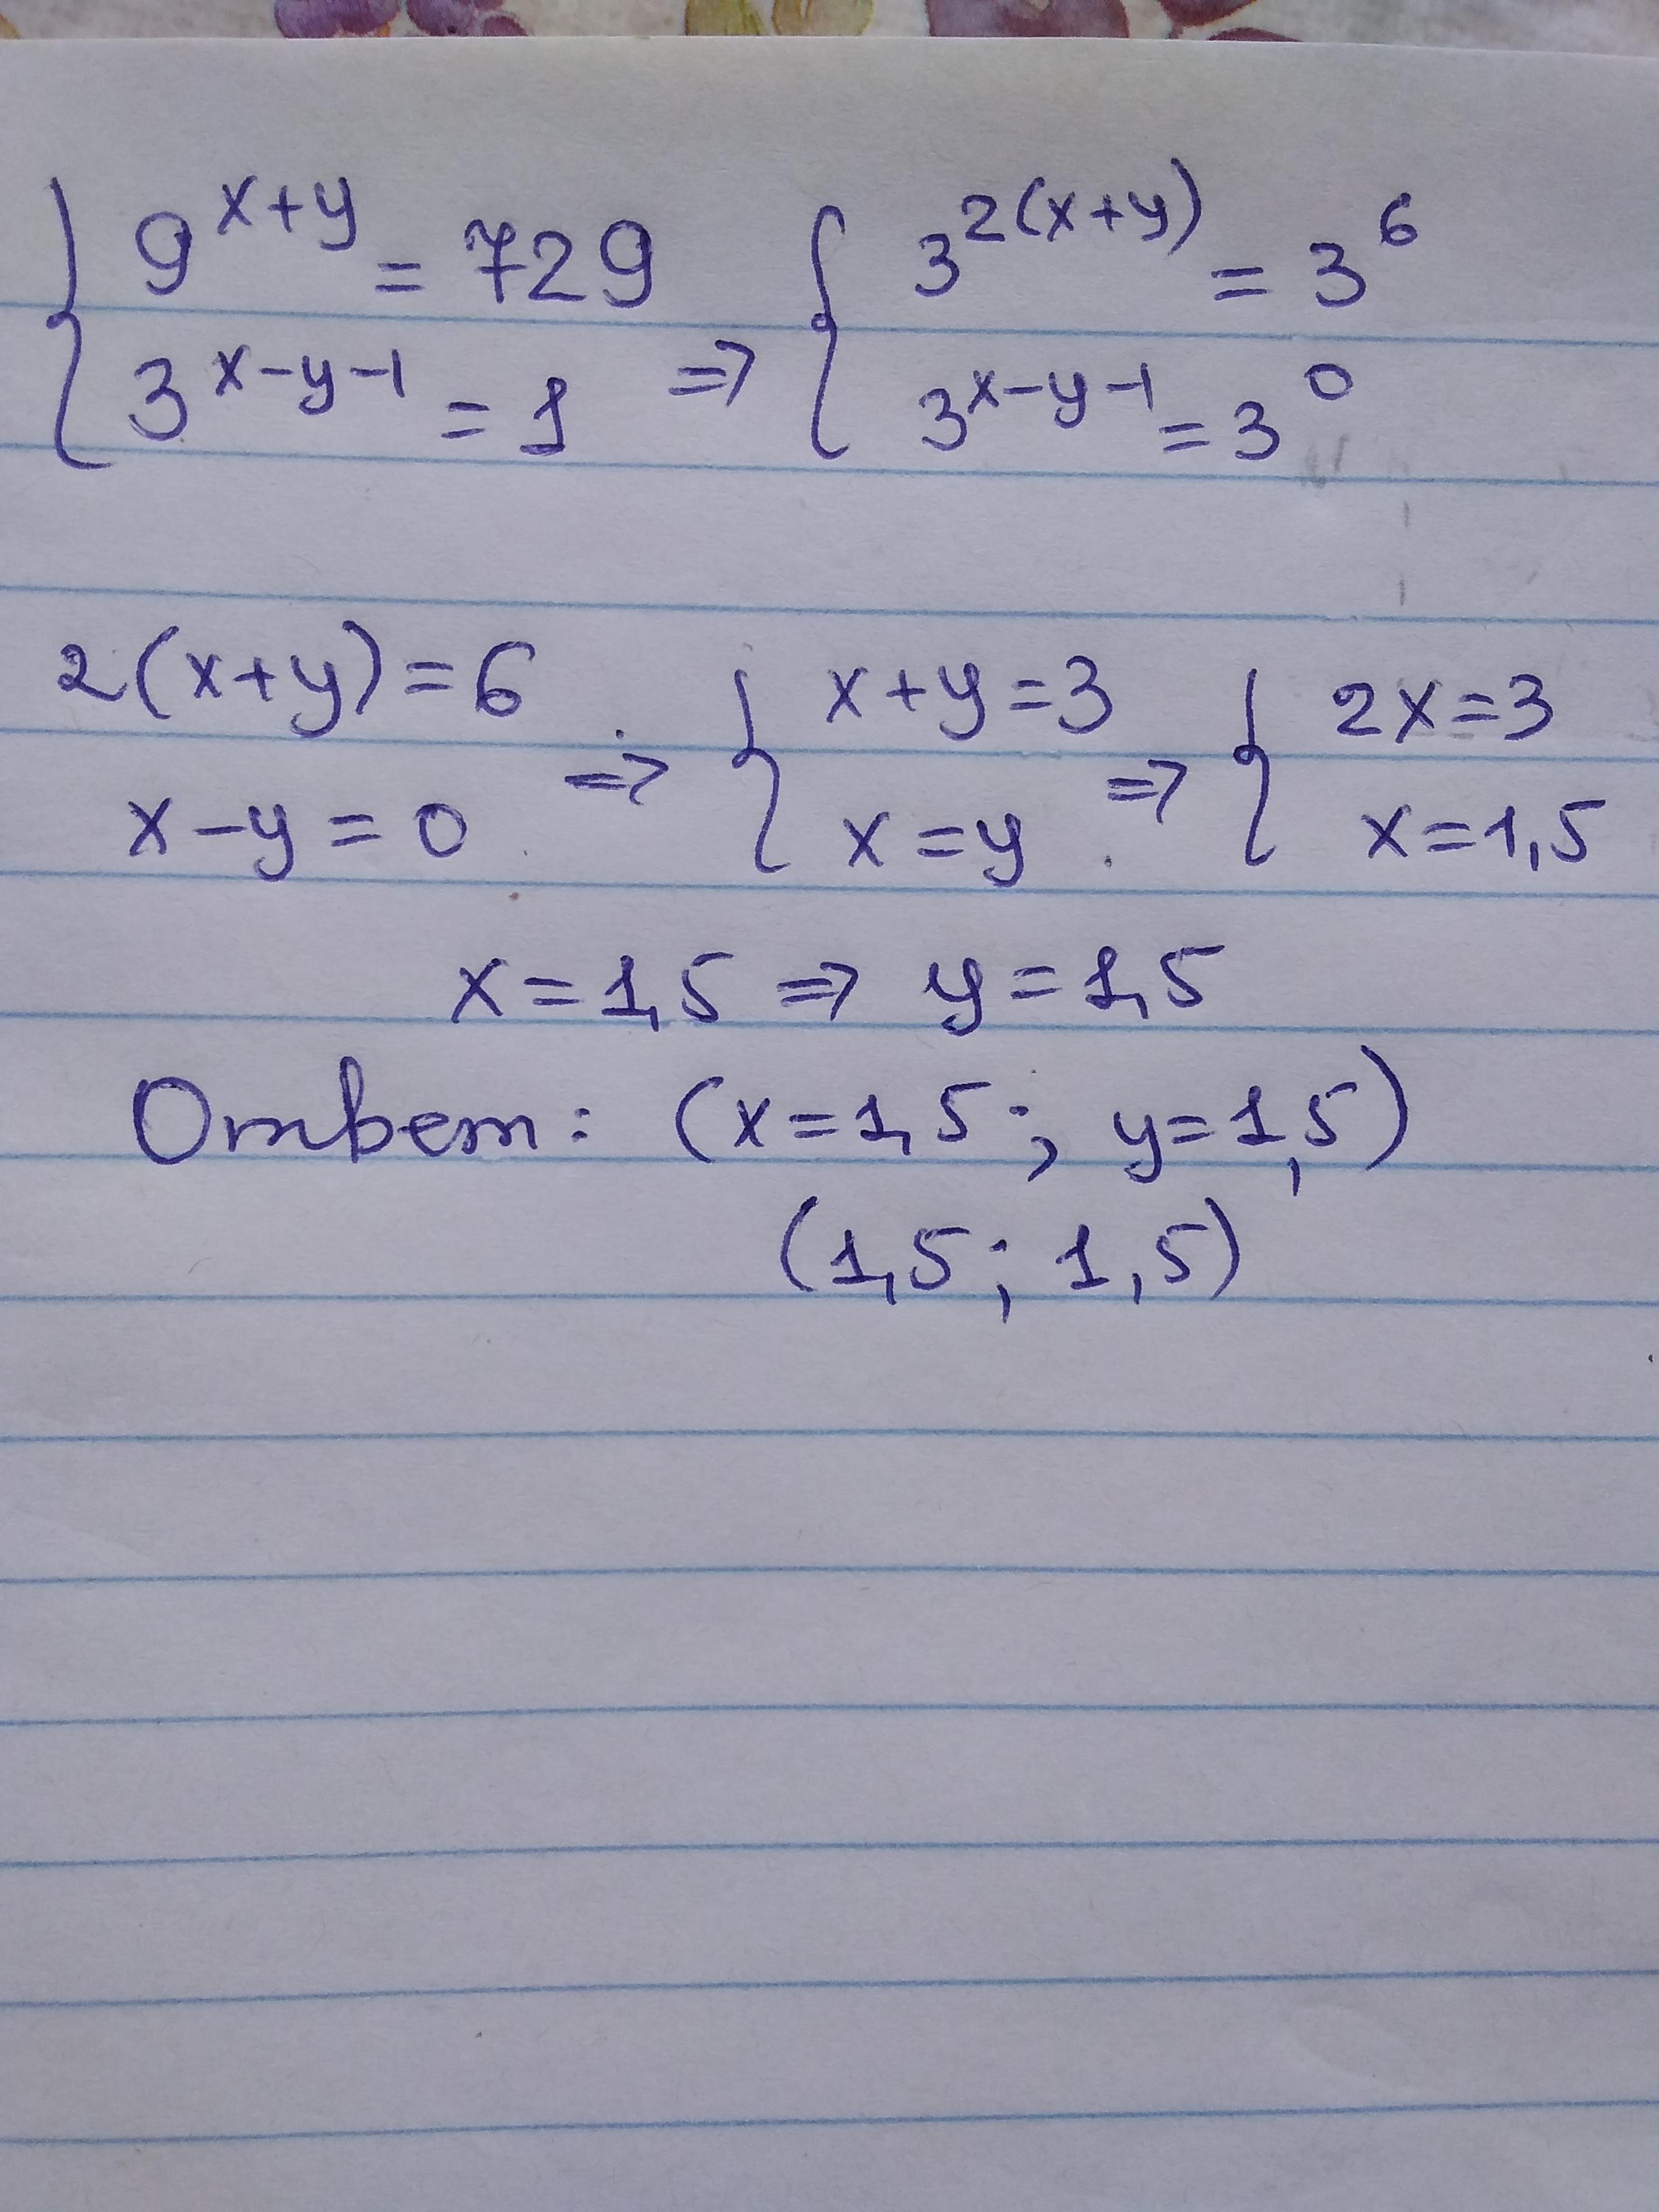 { 9^{x+y} = 729 => { 3^{2(x+y)} = 3^6
3^{x-y-1} = 1 3^{x-y-1} = 3^0
2(x+y)=6 => { x+y=3 => { 2x=3
x-y=0 x=y x=1,5
x=1,5 => y=1,5
Ответ: (x=1,5; y=1,5)
(1,5; 1,5)